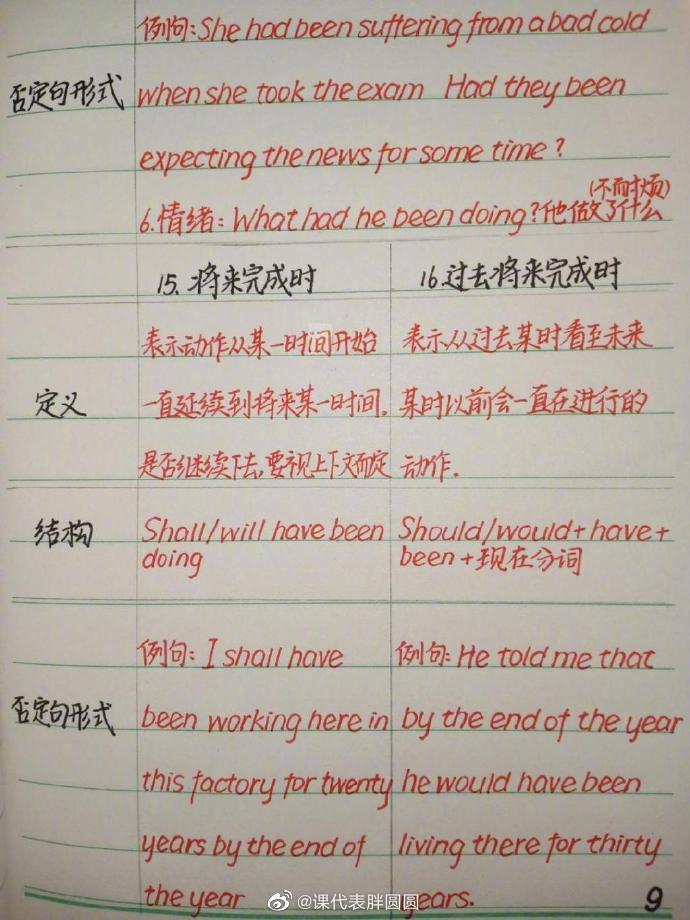 例句:She had been suffering from a bad cold
否定句形式
when she took the exam Had they been
expecting the news for some time?
(不耐烦)
6.情绪:What had he been doing?他做了什么
15.将来完成时
16.过去将来完成时
定义
表示动作从某一时间开始
一直延续到将来某一时间.
是否继续下去,要视上下文而定
表示从过去某时看至未来
某时以前会一直在进行的
动作.
结构
Shall/will have been
doing
Should/would+have+
been+现在分词
否定句形式
例句:I shall have
been working here in
this factory for twenty
years by the end of
the year
例句:He told me that
by the end of the year
he would have been
living there for thirty
years.
@课代表胖圆圆
9